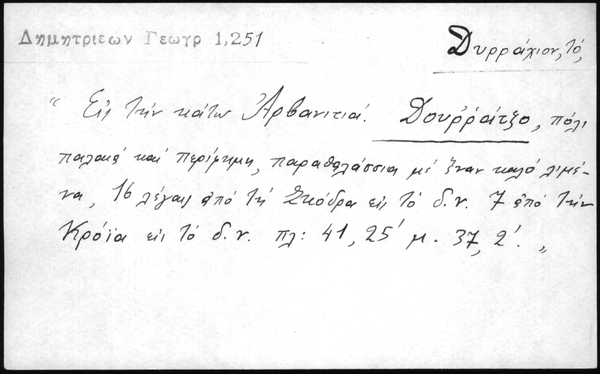 Δημητριεων Γεωγρ 1,251
Δυρράχιον, τό,
" Εἰς τὴν κάτω Ἀρβανιτιά. Δουῤῥάτζο, πόλι
παλαιὰ καὶ περίφημη, παραθαλάσσια μὲ ἕναν καλὸ λιμέ-
να, 16 λέγαις ἀπὸ τὴ Σκόδρα εἰς τὸ δ.ν. 7 ἀπὸ τὴν
Κρόϊα εἰς τὸ δ.ν. πλ: 41, 25′ μ. 37, 2′. "